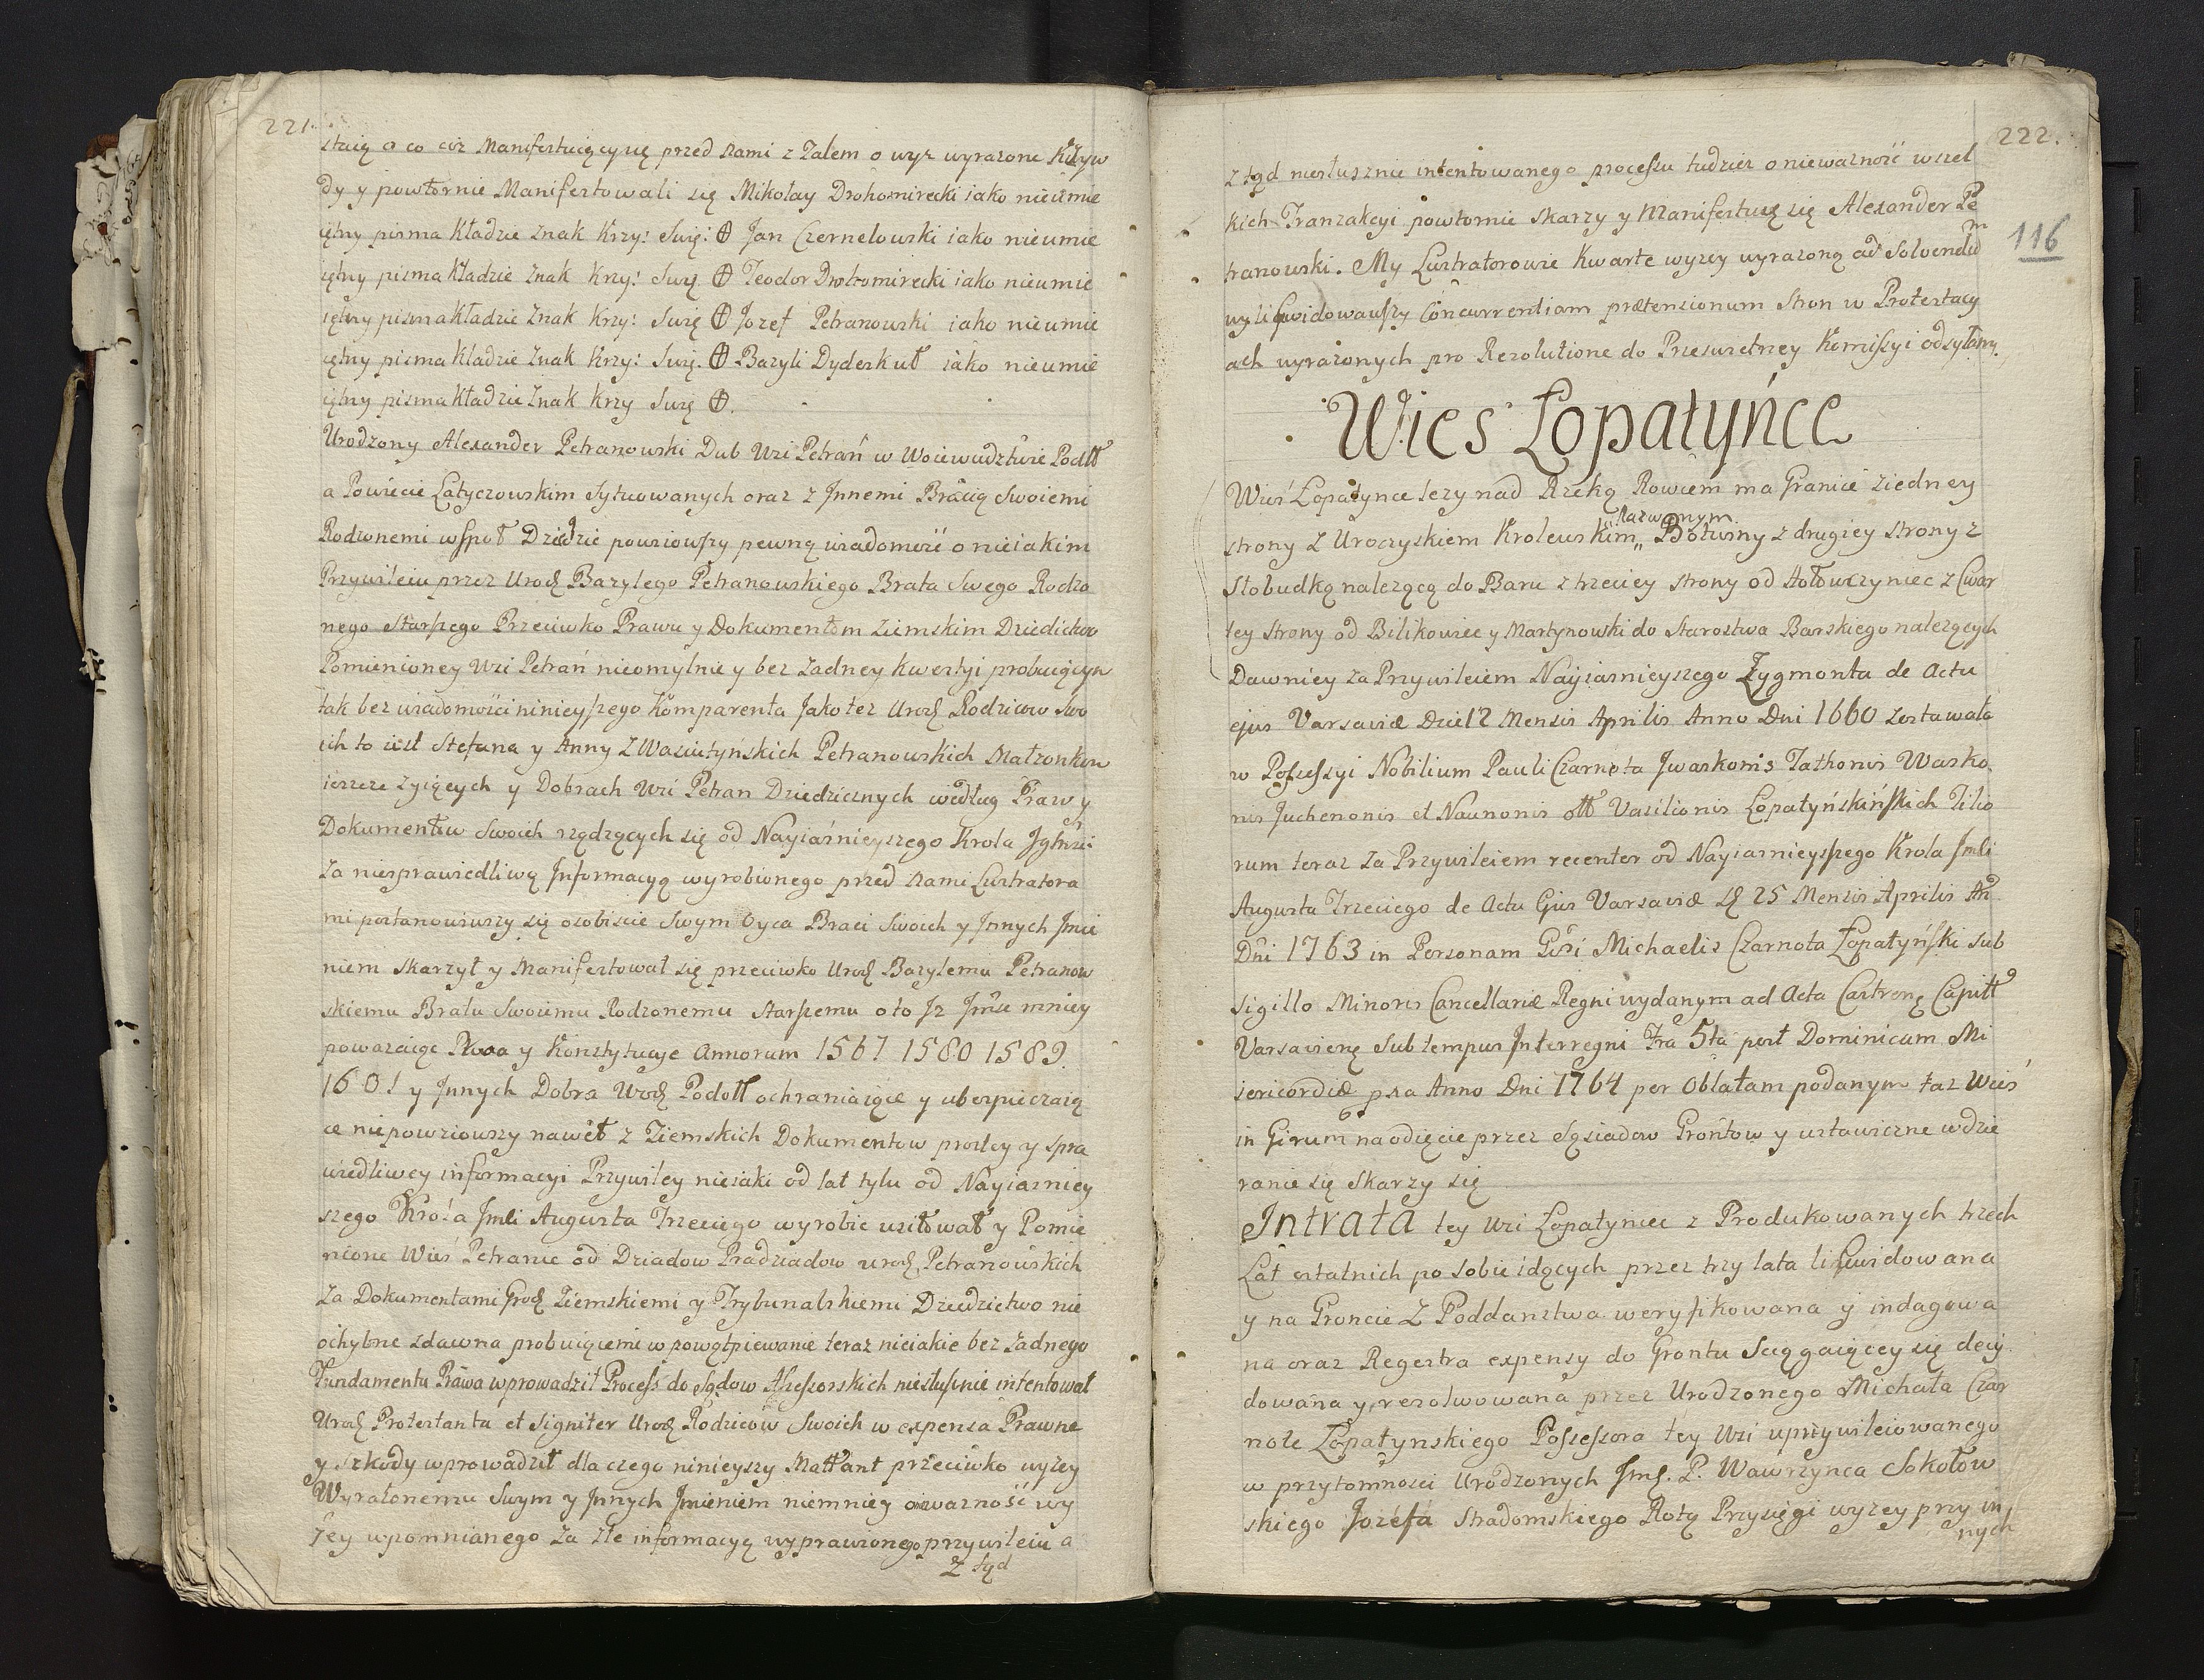 221.
staią o co iuż Manifestuiący się przed Nami z Zalem o wyż wyrazone Krzyw
dy y powtornie Manifestowali się Mikołay Drohomirecki iako nieumie
iętny pisma Kładzie Znak Krzy: Swię: ⊕ Jan Czernelowski iako nieumie
iętny pisma Kładzie Znak Krzy: Swię. ⊕ Teodor Drohomirecki iako nieumie
iętny pisma Kładzie Znak Krzy: Swię ⊕ Jozef Petranowski iako nieumie
iętny pisma Kładzie Znak Krzy: Swię. ⊕ Bazyli Dyderkuł iako nieumie
iętny pisma Kładzie Znak Krzy Swię ⊕.
Urodzony Alexander Petranowski Dub Wsi Petrań w Woiewudztwie Podtt
a Powiecie Latyczowskim Sytuowanych oraz z Jnnemi Bracią Swoiemi
Rodzonemi wspoł Dziedzic powziowszy pewną wiadomość o nieiakim
Przywileiu przez Urodz Bazylego Petranowskiego Brata Swego Rodzo
nego Starszego Przeciwko Prawu y Dokumentom Ziemskim Dziedictwo
Pomienioney Wsi Petrań nieomylnie y bez Zadney Kwestyi probuiącym
tak bez wiadomości ninieyszego Komparenta Jako też Urodz Rodzicow Swo
ich to iest Stefana y Anny Z Wasiutyńskich Petranowskich Małzonkow
ieszcze Zyiących y Dobrach Wsi Petran Dziedzicznych według Praw y
Dokumentow Swoich rządzących się od Nayiaśnieyszego Krola Jgłmści
Za niesprawiedliwą Jnformacyą wyrobionego przed Nami Lustratora
mi postanowiwszy się osobiscie Swym Oyca Braci Swoich y Jnnych Jmie
niem Skarzył y Manifestował się przeciwko Urodz Bazylemu Petranow
skiemu Bratu Swoiemu Rodzonemu Starszemu o to Jz Jmsc mniey
powazaiąc Prawa y Konstytucye Annorum 1567 1580 1589
1601 y Jnnych Dobra Urodz Podott ochraniaiące y ubezpieczaią
ce niepowziowszy nawet z Ziemskich Dokumentow prostey y Spra
wiedliwey informacyi Przywiley nieiaki od lat tylu od Nayiasniey
szego Krola Jmłi Augusta Trzeciego wyrobic usiłował y Pomie
nione Wies Petranie od Dziadow Pradziadow urodz Petranowskich
Za Dokumentami Grodz Ziemskiemi y Trybunalskiemi Dziedzictwo nie
ochybne zdawna probuiącemi w powątpiewanie teraz nieiakie bez Zadnego
Fundamentu Prawa wprowadził Process do Sądow Assessorskich niesłusznie intentował
Urodz Protestanta et Signiter Urodz Rodzicow Swoich w expensa Prawne
y szkody wprowadził dla czego ninieyszy Matłant przeciwko wyzey
Wyrazonemu Swym y Jnnych Jmieniem niemniey o iwazność wy
zey wpomnianego Za złe informacyą wyprawionego przywileiu a
Z tąd
222.
116
z tąd niesłusznie intentowanego processu tudziez o niewazność wszel
kich Tranzakcyi powtornie skarzy y Manifestuię się Alexander Pe
tranowski. My Lustratorowie Kwarte wyzey wyrazoną ad Solvendum
wyliqwidowawszy Concurrentiam prætensionum Stron w Protestacy
ach wyrazonych pro Rezolutione do Przeswietney Komissyi odsyłamy.
Wies Łopatyńce
Wieś Łopatynce lezy nad Rzeką Rowiem ma Granice ziedney
strony z Uroczyskiem Krolewskim„ Nazwanym Botwiny z drugiey strony z
Słobudką nalezącą do Baru z trzeciey strony od Hołowczyniec z Czwar
tey strony od Bilikowiec y Martynowski do Starostwa Barskiego nalezących
Dawniey za Przywileiem Nayiasnieyszego Zygmonta de Actu
ejus Varsaviæ Die 12 Mensis Aprilis Anno Dni 1660 zostawała
w Possessyi Nobilium Pauli Czarnota Jwaskonis Tathonis Wasko
nis Juchenonis et Naunonis ott Vasilionis Lopatyńskińskich Filio
rum teraz Za Przywileiem recenter od Nayiasnieyszego Krola Jmłi
Augusta Trzeciego de Actu Ejus Varsaviæ d 25 Mensis Aprilis An
Dni 1763 in Personam Gsi Michaelis Czarnota Łopatyński sub
Sigillo Minoris Cancellariæ Regni wydanym ad Acta Castreng Capitt
Varsavieng Sub tempus Jnterregni Fra 5ta post Dominicam Mi
sericordiæ pxa Anno Dni 1764 per Oblatam podanym taz Wieś
in Girum na odięcie przez Sąsiadow Grontow y ustawiczne wdzie
ranie się Skarzy się
Jntrata tey Wsi Łopatyniec z Produkowanych trzech
Lat ostatnich po sobie idących przez trzy lata liqwidowana
y na Groncie Z Poddanstwa weryfikowana y indagowa
na oraz Regestra expensy do Grontu Sciągaiącey się decy
dowana y rezolwowana przez Urodzonego Michała Czar
note Łopatynskiego Possessora tey Wsi uprzywileiowanego
w przytomnosci Urodzonych Jmę. P. Wawrzynca Sokołow
skiego Jozefa Stradomskiego Rotą Przysięgi wyzey przy in
nych